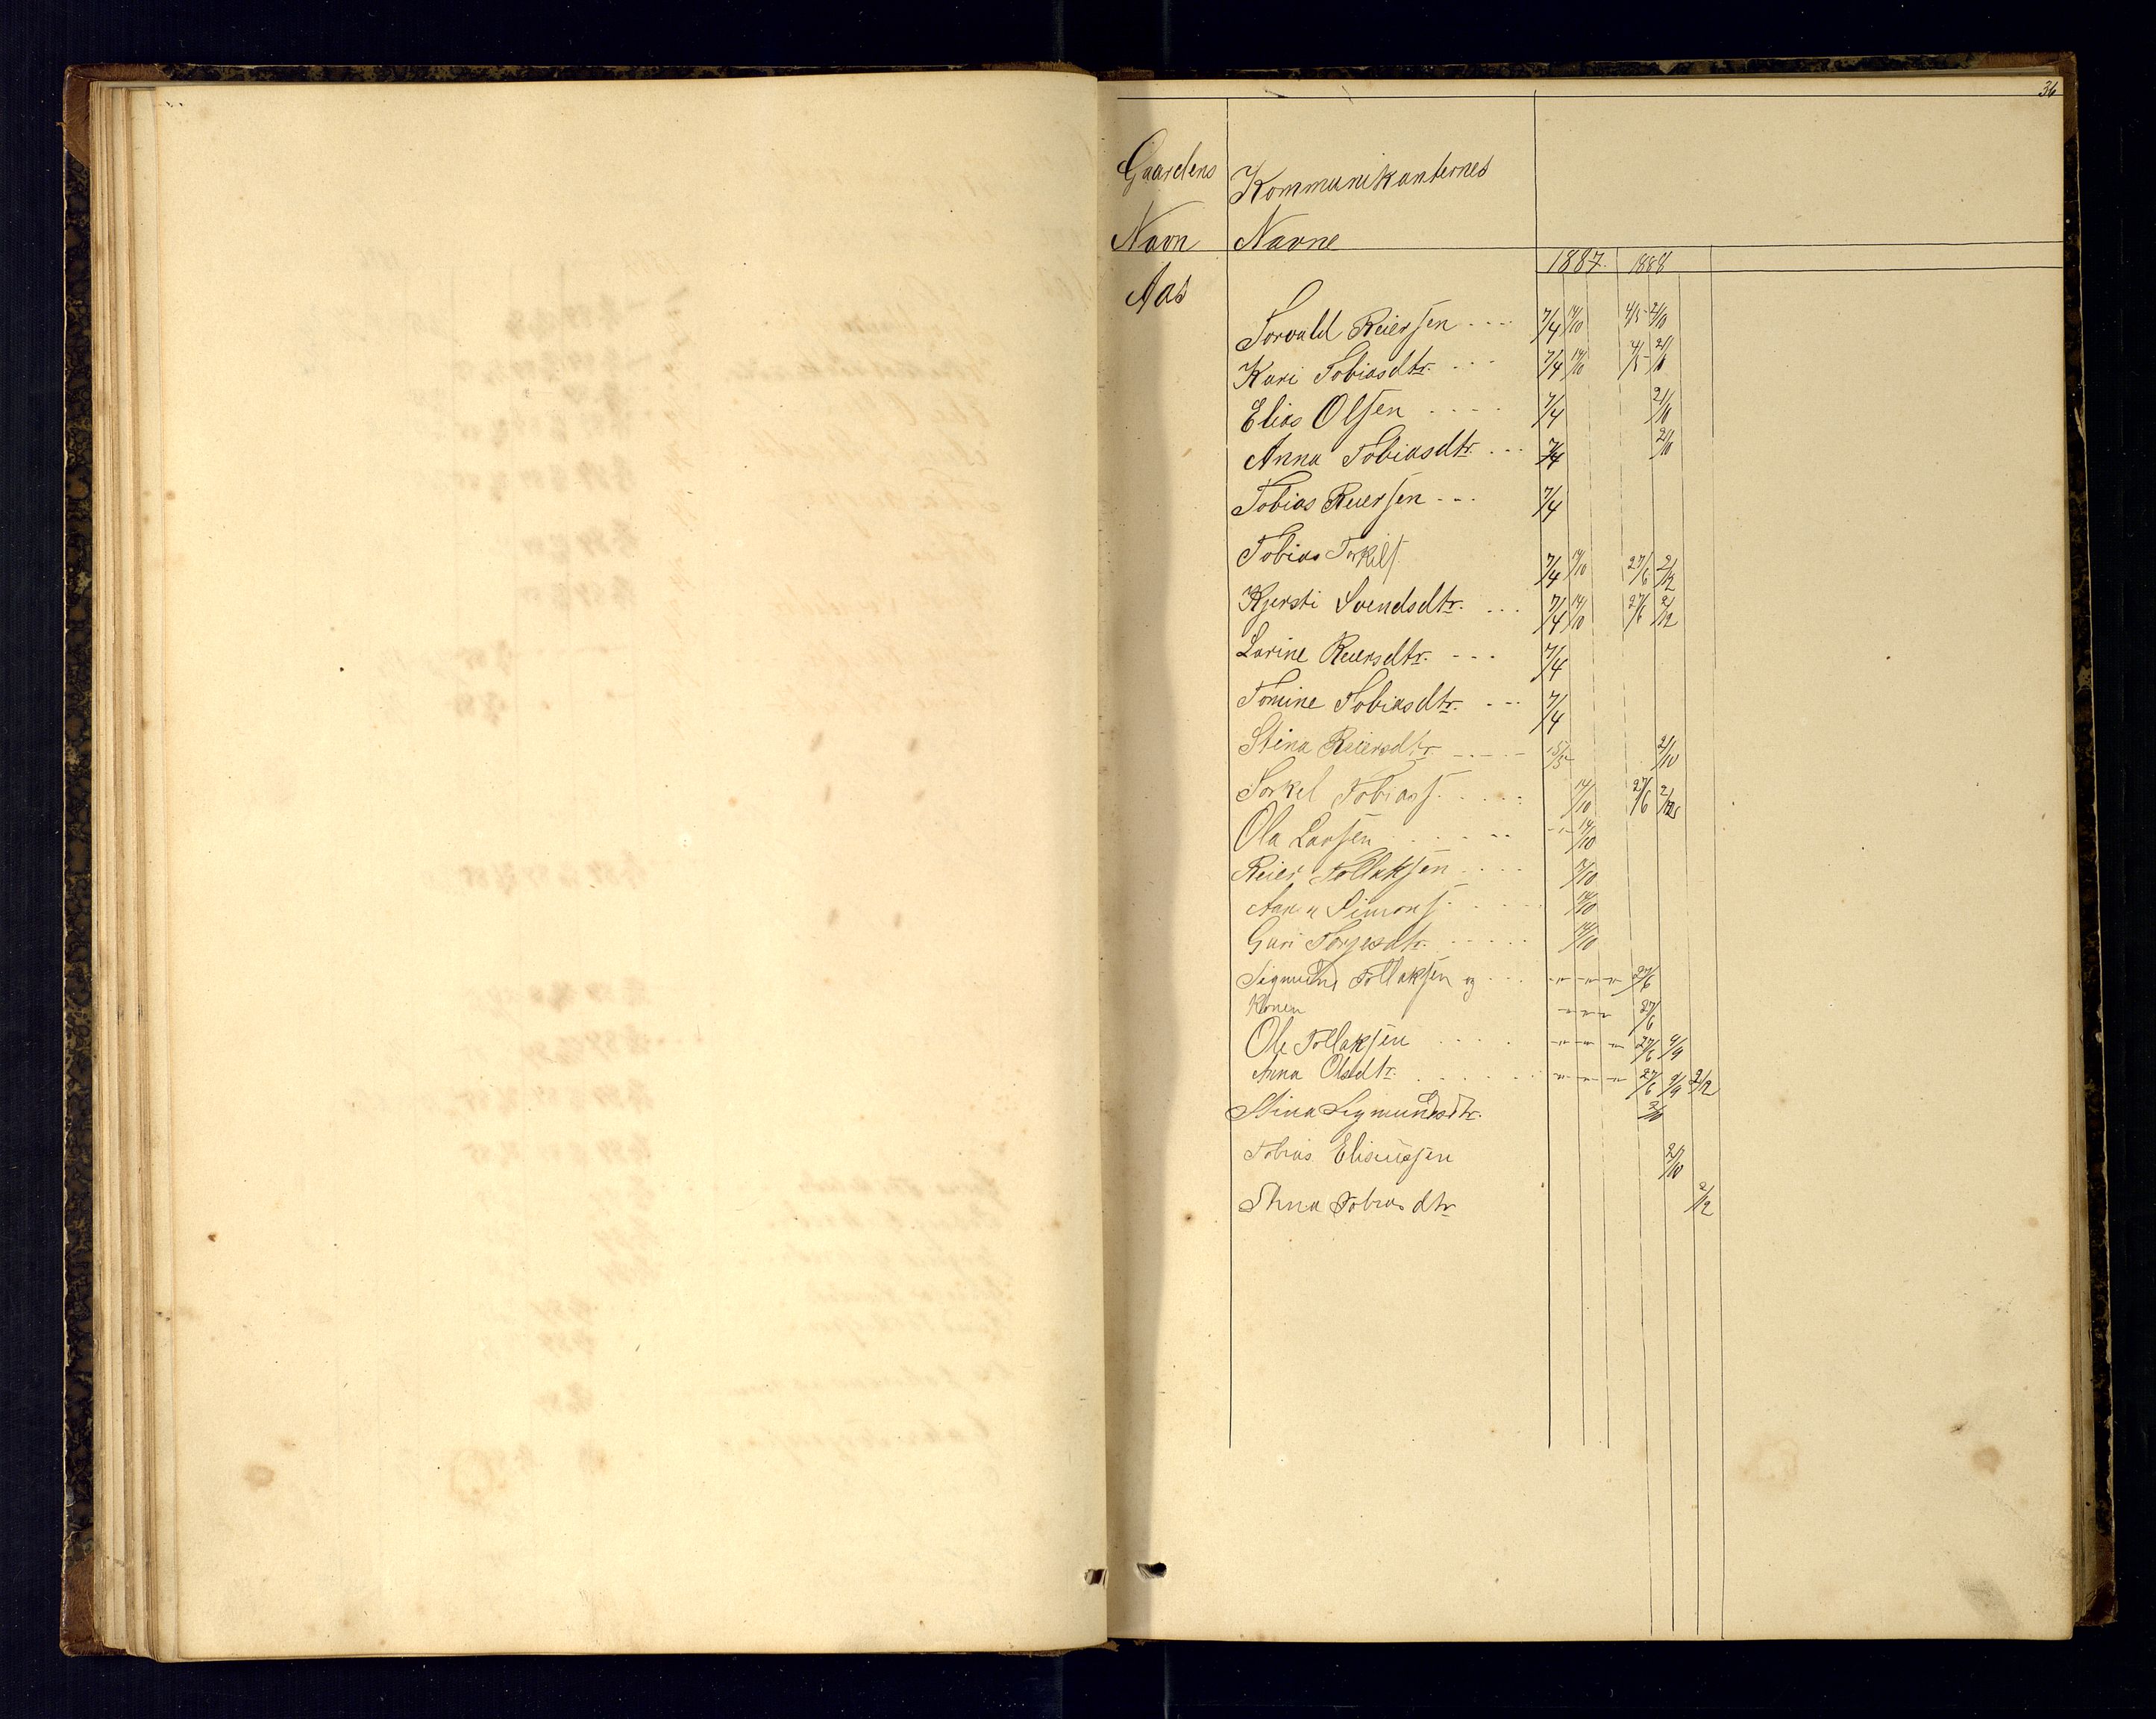 36
Gaardens Kommunikanternes
Navn Navne
1887. 1888
Aas
Torvald Reiersen .... 7/4 14/10 4/5 21/10
Kari Tobiasdtr. ... 7/4 14/10 4/5 21/10
Elias Olsen .... 7/4 21/10
Anna Tobiasdtr. ... 7/4 21/10
Tobias Reiersen --- 7/4
Tobias Torkils. 7/4 14/10 27/6 2/12
Kjersti Svendsdtr. ... 7/4 14/10 27/6 2/12
Lorine Reiersdtr. --- 7/4
Tomine Tobiasdtr. --- 7/4
Stina Reiersdtr ---- 15/5 21/10
Torkel Tobiass. .... 14/10 27/6 2/12
Ola Larsen .... 14/10
Reier Tollaksen .... 14/10
Simons. 14/10
Guri Torjesdtr. ..... 14/10
Sigmund Tollaksen og ... 27/6
Konen 27/6
Ole Tollaksen .... 27/6 9/9
Anna Olsdtr. ..... 27/6 9/9 2/12
Stina Sigmundsdtr. 21/10
Tobias Eliassen 21/10
Stina Tobiasdtr 2/12